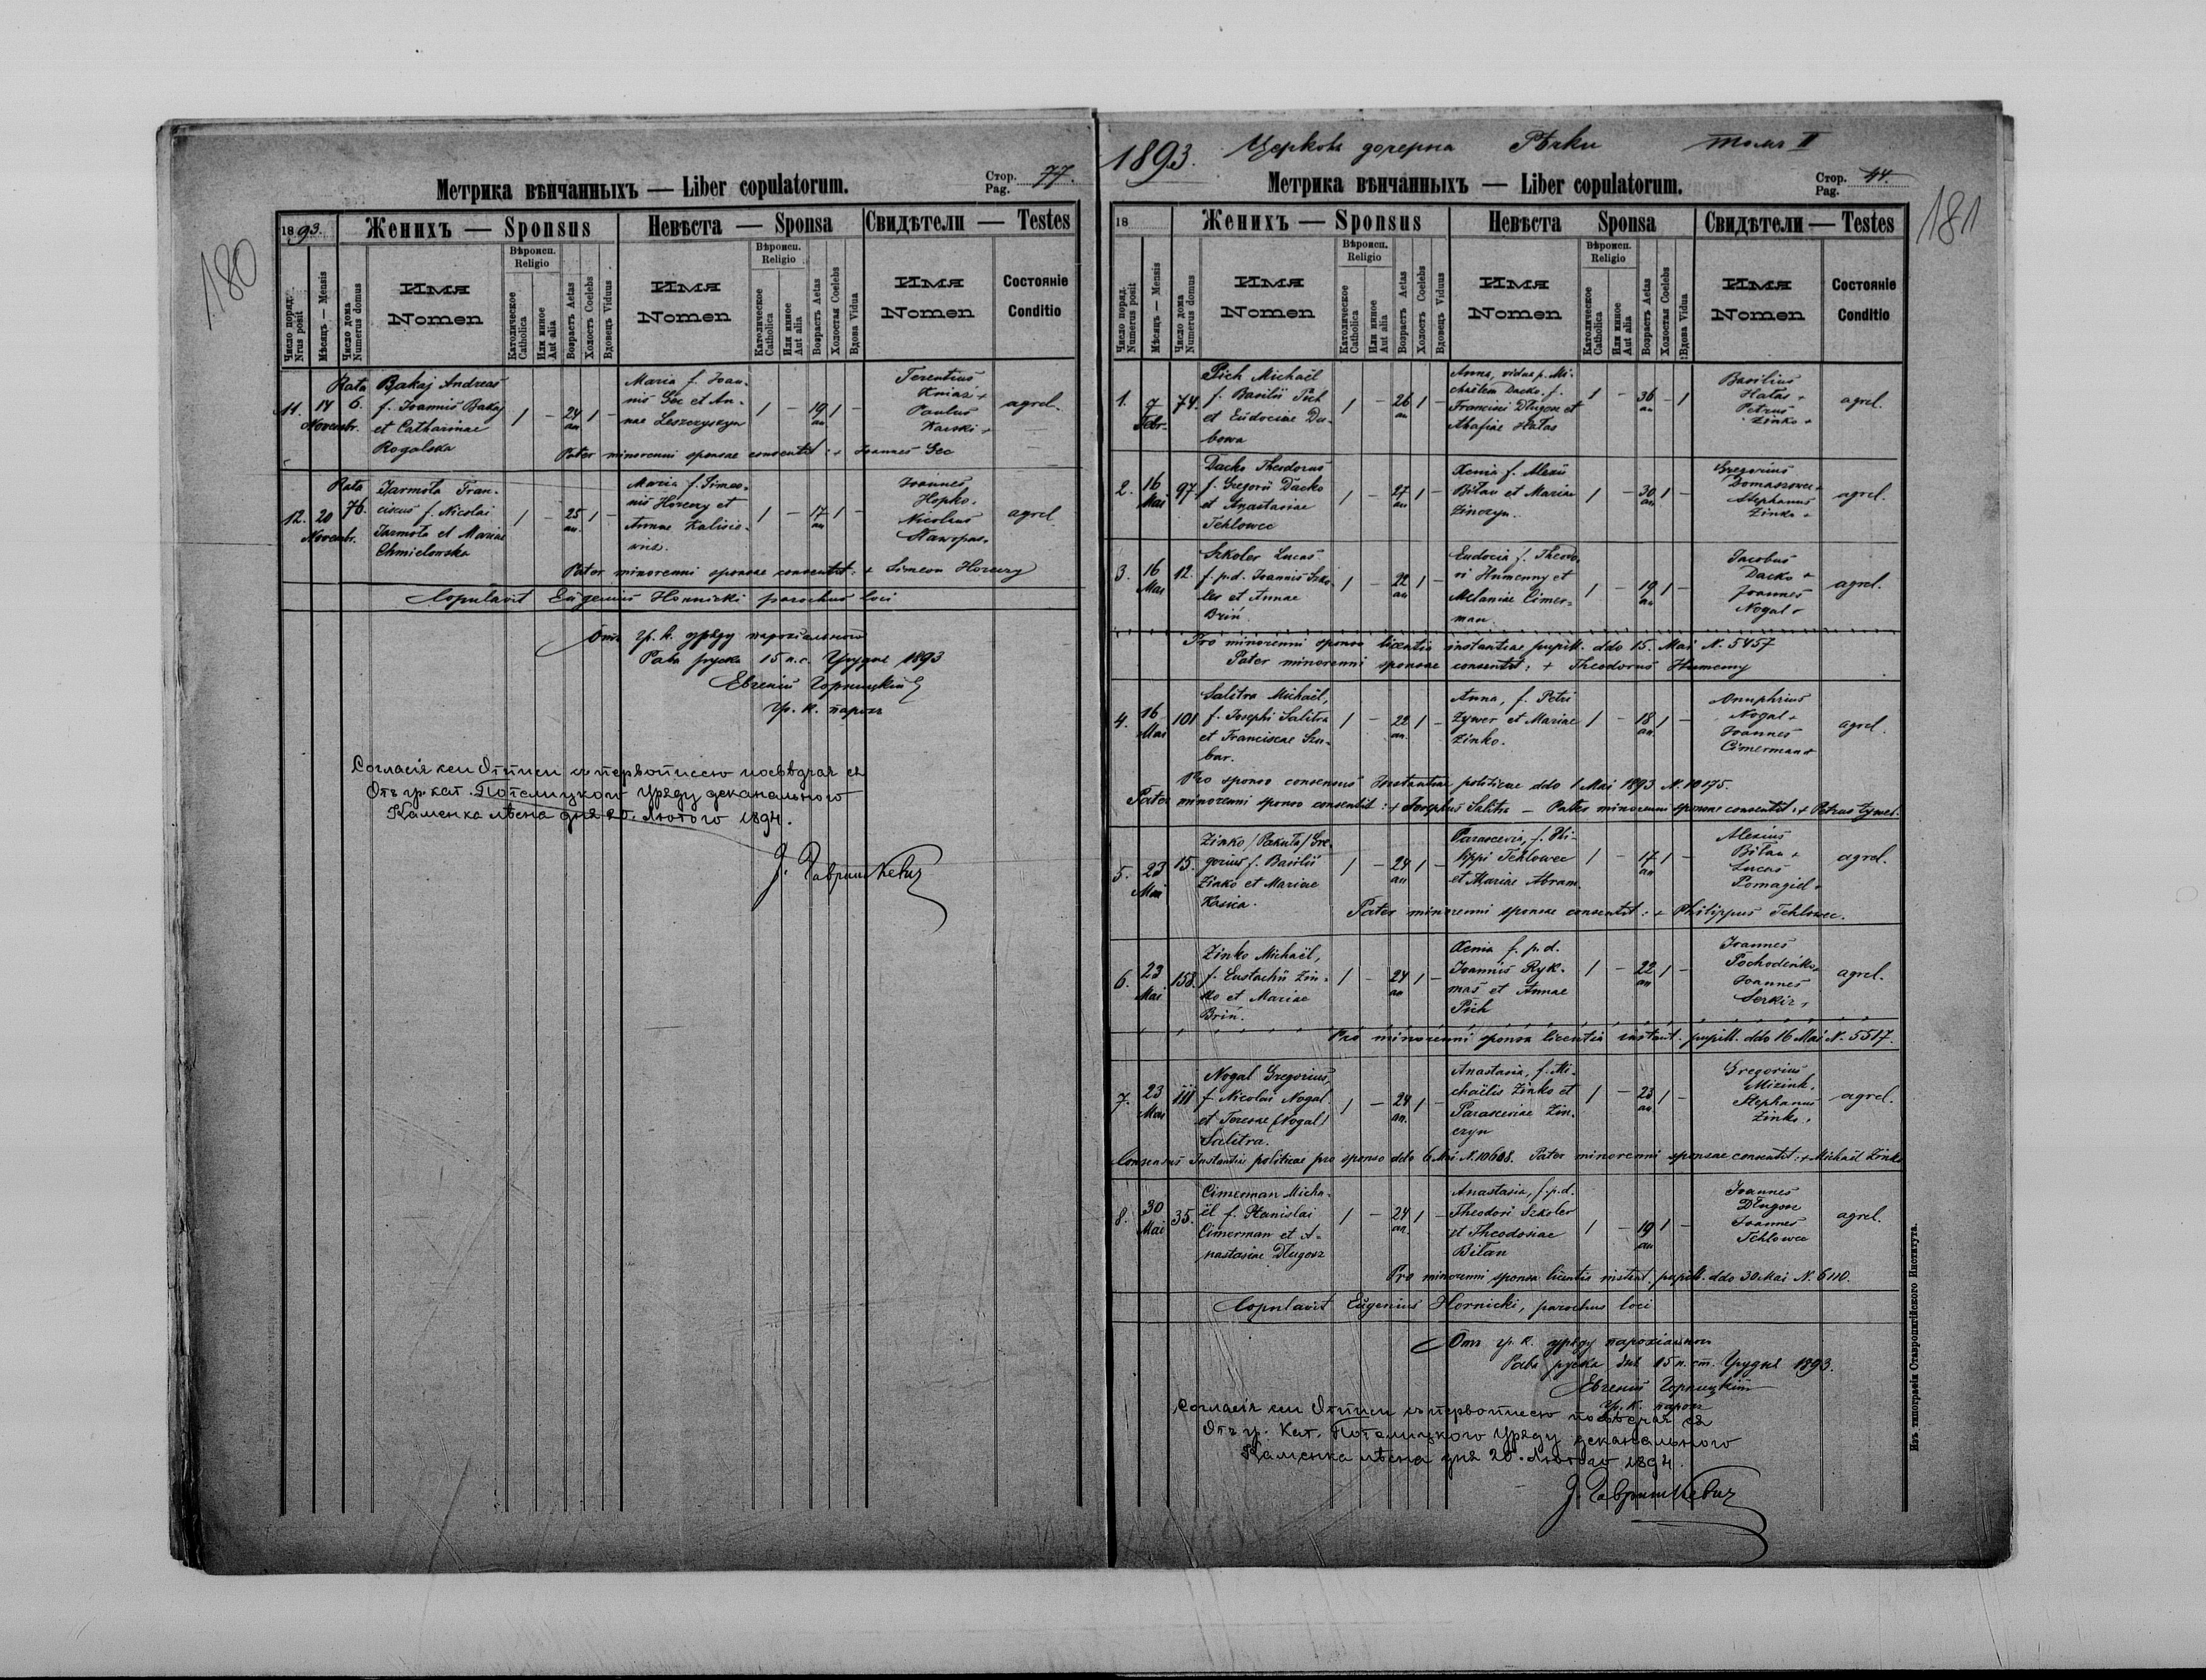 180
Метрика вѣнчанныхъ — Liber copulatorum.
Стор. Pag. 77.
1893.
Женихъ — Sponsus
Невѣста — Sponsa
Свидѣтели — Testes
Число поряд. Nrus posit
Мѣсяцъ — Mensis
Число дома Numerus domus
Имя Nomen
Вѣроисп. Religio
Католическое Catholica
Или иное Aut alia
Возрастъ Aetas
Холостъ Coelebs
Вдовецъ Viduus
Имя Nomen
Вѣроисп. Religio
Католическое Catholica
Или иное Aut alia
Возрастъ Aetas
Холостая Coelebs
Вдова Vidua
Имя Nomen
Состояніе Conditio
11. 14 Novembr. Rata 6.
Bakaj Andreas
f. Joannis Bakaj
et Catharinae
Rogalska
1 — 24 an 1 —
Maria f. Joan-
nis Gec et An-
nae Leszczyszyn
1 — 19 an 1 —
Terentius
Kniaź +
Paulus
Karski +
agrel.
Pater minorenni sponsae consentit: + Joannes Gec
12. 20 Novembr. Rata 76.
Jarmola Fran-
ciscus f. Nicolai
Jarmola et Mariae
Chmielowska
1 — 25 an. 1 —
Maria f. Simeo-
nis Horeczy et
Annae Kalisie-
wicz.
1 — 17 an 1 —
Joannes
Hopko.
Nicolaus
agrel.
Pater minorenni sponsae consentit: + Simeon Horeczy
Copulavit Eugenius Hornicki parochus loci
Отъ гр. к. уряду парохіального
Рава руска 15 н. с. Грудня 1893
Евгеній Горницкій
гр. к. парохъ
Согласія сеи Отписи съ первописею посвѣдчая ся
Отъ гр. кат. Потелицкого Уряду деканального
Каменка лѣсна дня 20. Лютого 1894.
181
1893. Церковь дочерна Рѣчки томъ II
Метрика вѣнчанныхъ — Liber copulatorum.
Стор. Pag. 44.
18
Женихъ — Sponsus
Невѣста Sponsa
Свидѣтели — Testes
Число поряд. Numerus posit
Мѣсяцъ — Mensis
Число дома Numerus domus
Имя Nomen
Вѣроисп. Religio
Католическое Catholica
Или иное Aut alia
Возрастъ Aetas
Холостъ Coelebs
Вдовецъ Viduus
Имя Nomen
Вѣроисп. Religio
Католическое Catholica
Или иное Aut alia
Возрастъ Aetas
Холостая Coelebs
Вдова Vidua
Имя Nomen
Состояніе Conditio
1. 7 Febr. 74.
Pich Michaël
f. Basilii Pich
et Eudociae Du-
bowa
1 — 26 an 1 —
Anna, vidua p. Mi-
chaëlem Dacko, f.
Francisci Długosz et
Ahafiae Hałas
1 — 36 an — 1
Basilius
Hałas +
Petrus
Zinko +
agrel.
2. 16 Mai 97.
Dacko Theodorus
f. Gregorii Dacko
et Anastasiae
Tehlowec
1 — 27 an 1 —
Xenia f. Alexii
Biłan et Mariae
Zinczyn.
1 — 30 an. 1 —
Gregorius
Stephanus
Zinko +
agrel.
3. 16 Mai 12.
Szkoler Lucas
f. p. d. Joannis Szko-
ler et Annae
Briń
1 — 22 an 1 —
Eudocia f. Theodo-
ri Humenny et
Melaniae Cimer-
man
1 — 19 an 1 —
Jacobus
Dacko +
Joannes
Nogal +
agrel.
Pro minorenni sponso licentia instantiae pupill. ddo 15. Mai N. 5457
Pater minorenni sponsae consentit: + Theodorus Humenny
4. 16 Mai 101
Salitra Michaël,
f. Josephi Salitra
et Franciscae Szu-
bar.
1 — 22 an. 1 —
Anna, f. Petri
Zywer et Mariae
Zinko.
1 — 18 an. 1 —
Onuphrius
Nogal +
Joannes
Cimerman +
agrel.
Pro sponso consensus Instantiae politicae ddo 1 Mai 1893 N. 10175.
Pater minorenni sponso consentit: + Josephus Salitra — Pater minorenni sponsae consentit: + Petrus Zywer.
5. 23 Mai 15.
Zinko /Pakuła/ Gre-
gorius f. Basilii
Zinko et Mariae
Kassia.
1 — 24 an 1 —
Parascevia, f. Phi-
lippi Tehlowec
et Mariae Abram.
1 — 17 an 1 —
Alexius
Biłan +
Lucas
Pomagiel +
agrel.
Pater minorenni sponsae consentit: + Philippus Tehlowec.
6. 23 Mai 158.
Zinko Michaël,
f. Eustachii Zin-
ko et Mariae
Briń.
1 — 24 an 1 —
Xenia f. p. d.
Joannis Ryk-
mas et Annae
Pich
1 — 22 an 1 —
Joannes
Joannes
Serkiz +
agrel.
Pro minorenni sponsa licentia instant. pupill. ddo 16 Mai N. 5517.
7. 23 Mai 111
Nogal Gregorius,
f. Nicolai Nogal
et Teresae (Nogal)
Salitra.
1 — 24 an. 1 —
Anastasia, f. Mi-
chaëlis Zinko et
Parasceviae Zin-
czyn
1 — 23 an 1 —
Gregorius
Mizink.
Stephanus
Zinko.
agrel.
Consensus Instantiae politicae pro sponso ddo 6 Mai N. 10608. Pater minorenni sponsae consentit: + Michaël Zinko
8. 30 Mai 35.
Cimerman Micha-
ël f. Stanislai
Cimerman et A-
nastasiae Długosz
1 — 24 an. 1 —
Anastasia, f. p. d.
Theodori Szkoler
et Theodosiae
Biłan
1 — 19 an 1 —
Joannes
Długosz
Joannes
Tehlowec
agrel.
Pro minorenni sponsa licentia instant. pupill. ddo 30 Mai N. 6110.
Copulavit Eugenius Hornicki, parochus loci
Отъ гр. к. уряду парохіального
Рава руска дня 15 н. ст. Грудня 1893.
Евгеній Горницкій
гр. к. парохъ
Согласія сеи Отписи съ первописею посвѣдчая ся
Отъ гр. Кат. Потелицкого Уряду деканального
Каменка лѣсна дня 20. Лютого 1894.
Изъ типографіи Ставропигійского Института.